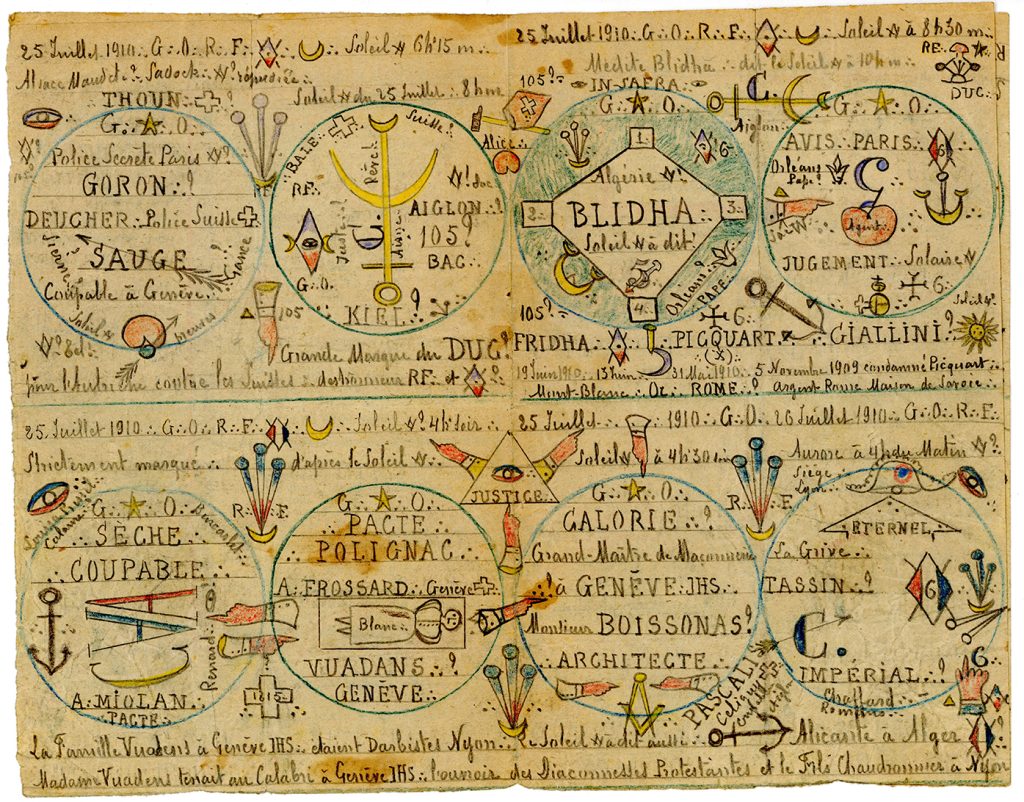 25 Juillet 1910.·. G.·. O.·. R.·. F.·. Soleil 6h15 m.·.
Alsace Maudete? Sadock.·. ? répudiée.·.
THOUN.·. ?
Soleil du 25 Juillet.·. 8h me
G.·. O.·.
Police Secrète Paris ?
GORON.·. ?
DEUCHER.·. Police Suisse
SAUGE
Coupable à Genève.·.
BALE.·.
Suisse?
RF.·.
Alice.·.
AIGLON.·. ?
105?
BAC.·.
G.·. O.
KIEL.·. ?
105
Grande Marque du DUC?
pour l'Autriche contre les Juilles & deshonneur RF.·. et
25 Juillet 1910.·. G.·. O.·. R.·. F.·. Soleil à 8h30 m.·.
Medite Blidha.·. dit le Soleil à 10h m.·.
105?.·. IN-SAFRA.·.
RF.·.
DUC.·.
G.·. O.·.
C.·.
Aiglon.·.
1
Algerie ?
2.·. BLIDHA.·. 3.·.
Soleil à dit.·.
4.·.
Orléans?
PAPE.·.
G
G.·. O.·.
AVIS.·. PARIS.·.
Orléans
Pape?
6
Agent.·.
JUGEMENT.·. Solaire
G
105?.·.
FRIDHA.·. PICQUART.·. GIALLINI.·. ?
G.·.
(X)
19 Juin 1910.·. 13 Juin.·. 31 Mai 1910.·. 5 Novembre 1909 condamné Picquart.·.
Mont-Blanc.·. Oc.·. ROME.·. ? Argent Rome Maison de Savoie.·.
25.·. Juillet 1910.·. G.·. O.·. R.·. F.·. Soleil ? 4h Soir.·.
Strictement marqué.·. d'après le Soleil
G.·. O.·.
SÈCHE
COUPABLE.·.
R.·. F.·.
Renard.·.
A. MIOLAN.·.
PACTE.·.
1815
G.·. O.·.
PACTE
POLIGNAC.·.
A. FROSSARD.·. Genève
Blanc.·.
VUADANS.·. ?
GENÈVE.·.
JUSTICE.·.
25 Juillet.·. 1910.·. G.·. O.·. 26 Juillet 1910.·. G.·. O.·. R.·. F.·.
Soleil à 4h30 m.·. Aurore à 4h du Matin ?
Siège.·.
Lyon.·.
G.·. O.·.
CALORIE.·. ?
Grand-Maître de Maçonnerie
à GENÈVE.·. JHS.·.
Monsieur BOISSONAS?
ARCHITECTE.·.
R.·. F.·.
ETERNEL.·.
La Grive.·.
TASSIN.·. ?
6
C.·.
IMPÉRIAL.·. ?
G.·.
Chaffard.·.
PASCALIS
Caligny
Alicante à Alger
La Famille Vuadens à Genève JHS.·. étaient Darbistes Nyon.·. Le Soleil à dit aussi.·.
Madame Vuadens tenait au Calabri à Genève JHS.·. l'ouvroir des Diaconnesses Protestantes et le Fils Chaudronnier à Nyon